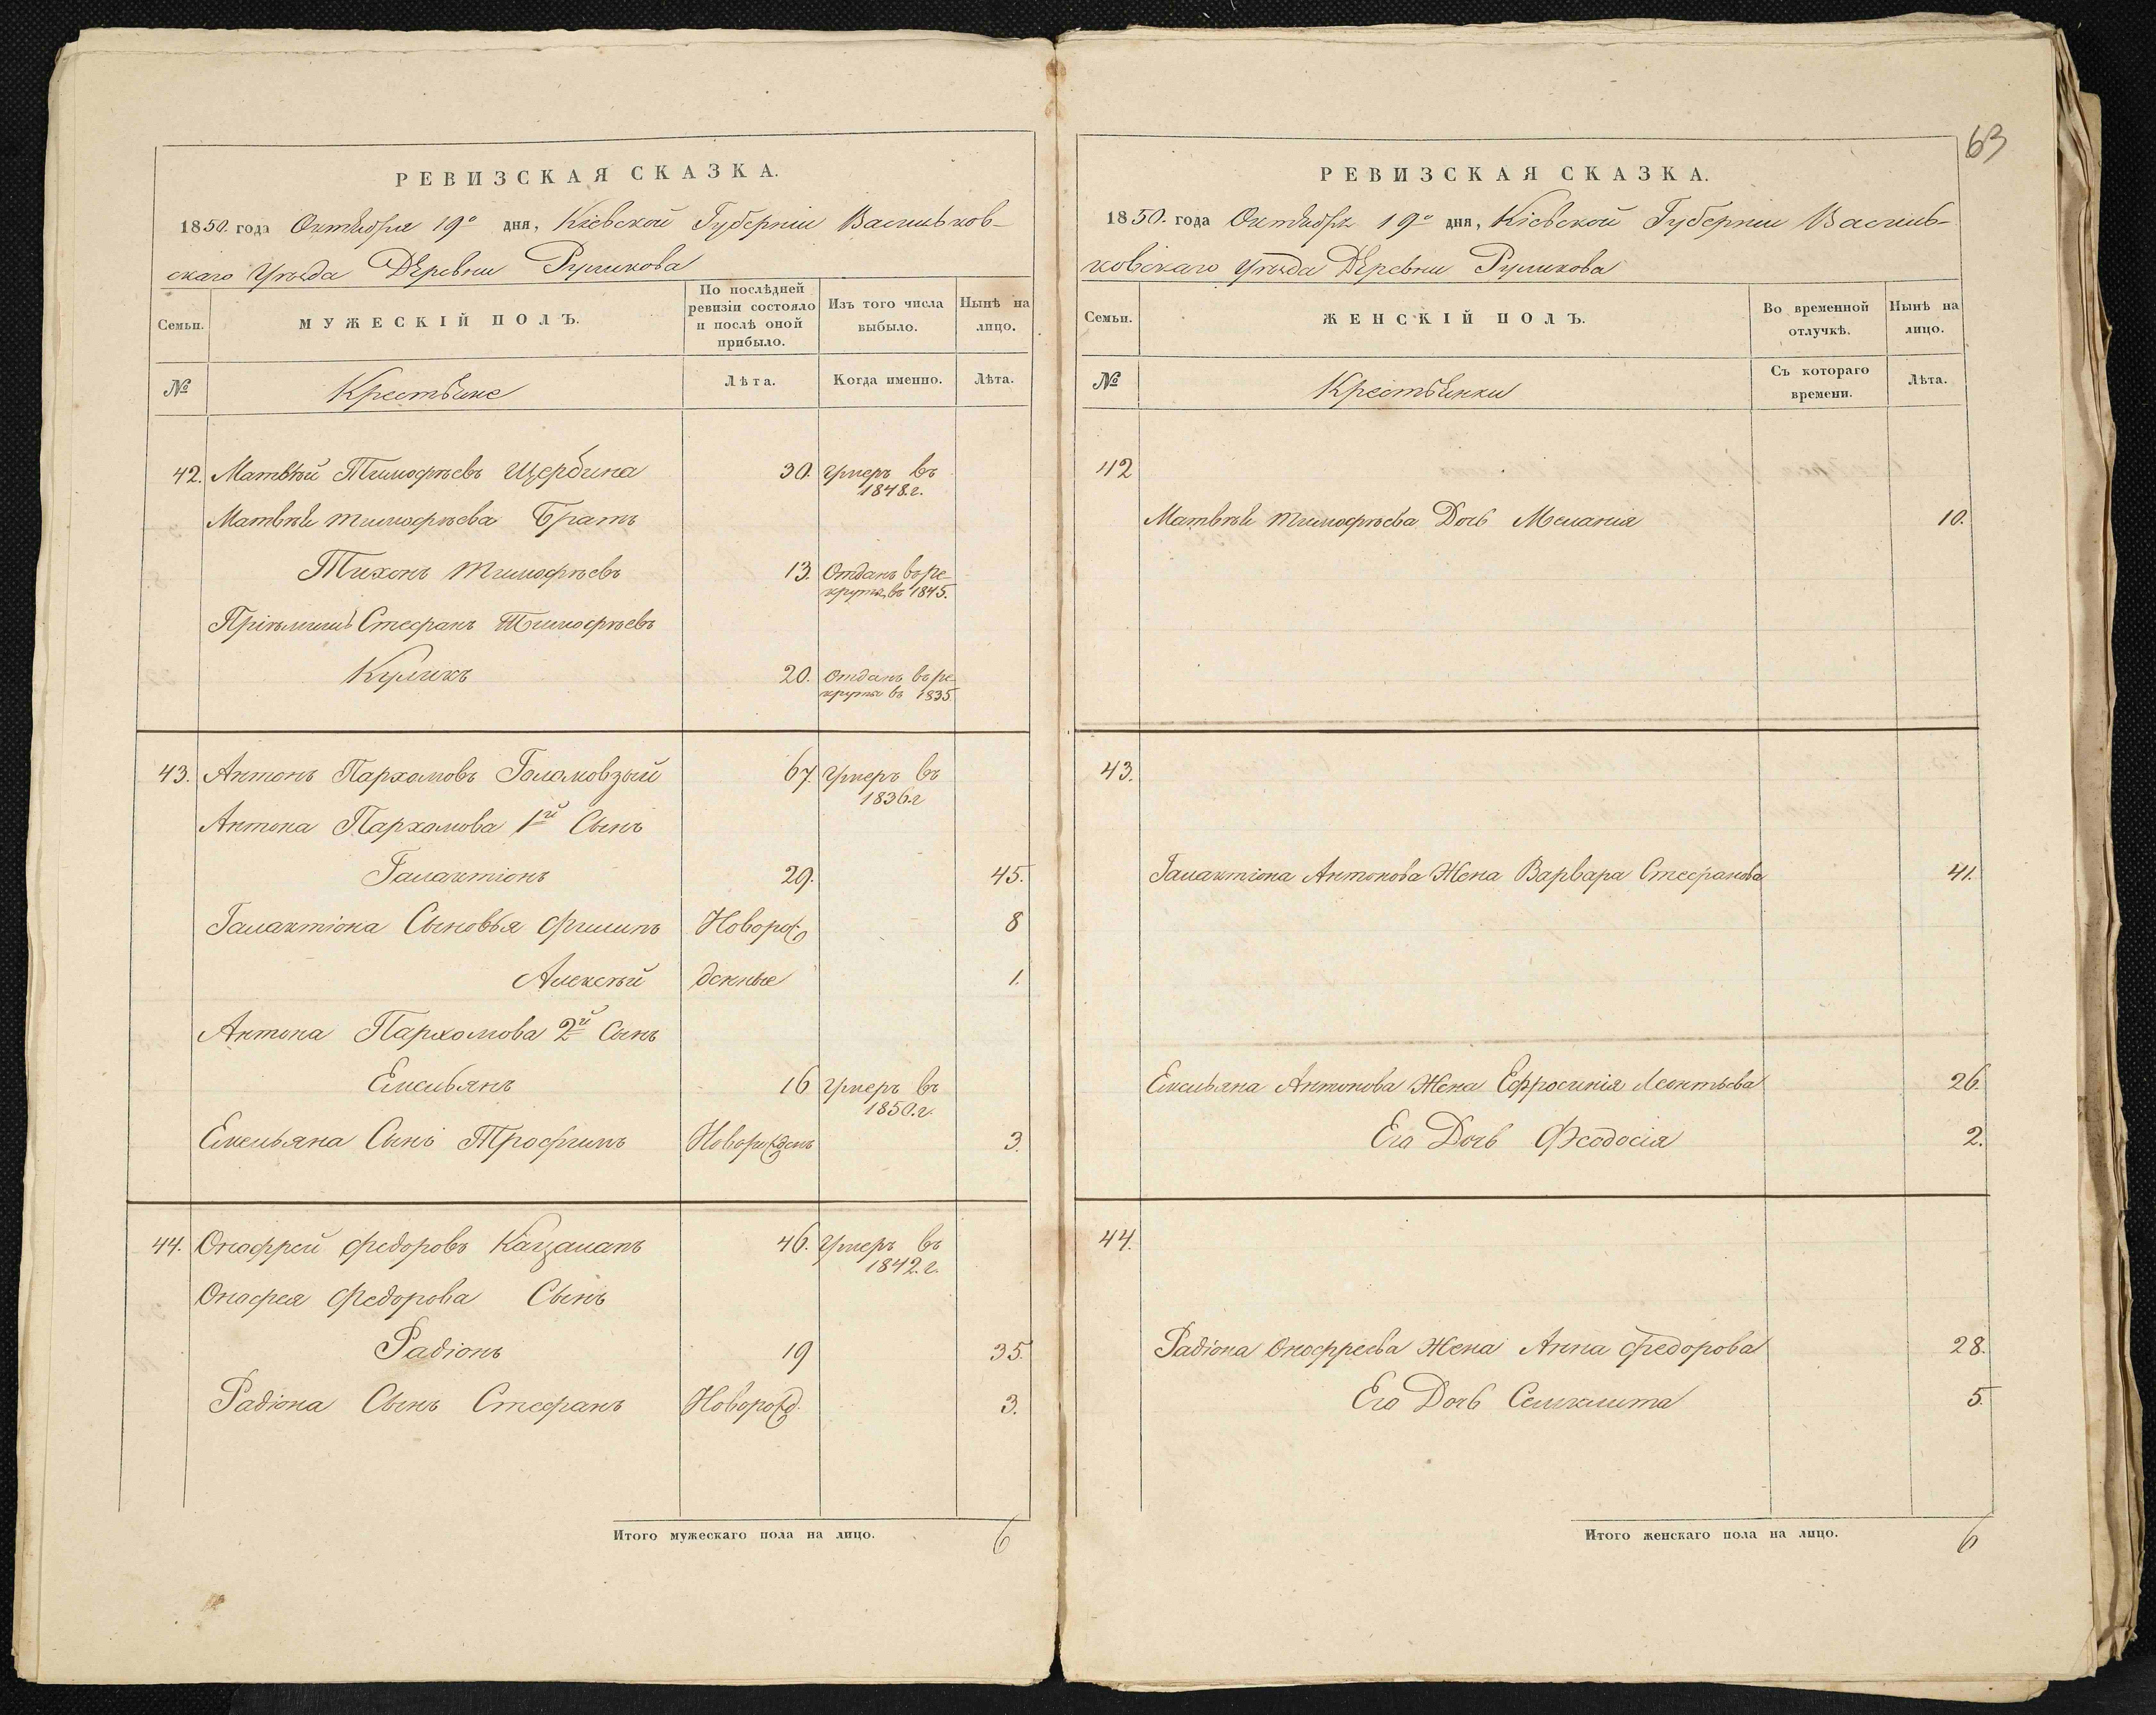 РЕВИЗСКАЯ СКАЗКА.
1850. года Октября 19го дня, Кіевской Губерніи Васильков-
скаго Уѣзда Деревни Руликова
Семьи.
МУЖЕСКІЙ ПОЛЪ.
По послѣдней ревизіи состояло и послѣ оной прибыло.
Изъ того числа выбыло.
Нынѣ на лицо.
№
Крестьяне
Лѣта.
Когда именно.
Лѣта.
42. Матвѣй Тимофѣевъ Щербина 30. Умеръ въ
1848.г.
Матвѣя Тимофѣева Братъ
Тихонъ Тимофѣевъ 13. Отданъ въ ре-
круты въ 1845.
Пріемышъ Стефанъ Тимофѣевъ
Куликъ 20. Отданъ въ ре
круты въ 1835
43. Антонъ Пархомовъ Голомовзый 67. Умеръ въ
1836.г
Антона Пархомова 1й Сынъ
Галактіонъ 29. 45.
Галактіона Сыновья ФилипъНоворож 8
Алексѣй денные 1.
Антона Пархомова 2й Сынъ
Емельянъ 16 Умеръ въ
1850.г.
Емельяна Сынъ Трофимъ Новорожденъ 3.
44. Онофрей Федоровъ Кацапанъ 46. Умеръ въ
1842.г.
Онофрея Федорова Сынъ
Радіонъ 19 35.
Радіона Сынъ Стефанъ Іоворожд. 3.
Итого мужескаго пола на лицо. 6
63
РЕВИЗСКАЯ СКАЗКА.
1850. года Октября 19го дня, Кіевской Губерніи Василь-
ковскаго Уѣзда Деревни Руликова
Семьи.
ЖЕНСКІЙ ПОЛЪ.
Во временной отлучкѣ.
Нынѣ на лицо.
№
Крестьянки
Съ котораго времени.
Лѣта.
42
Матвѣя Тимофѣева Дочь Меланія 10.
43.
Галактіона Антонова Жена Варвара Стефанова 41.
Емельяна Антонова Жена Ефросинія Леонтьева 26.
Его Дочь Феодосія 2.
44.
Радіона Онофреева Жена Анна Федорова 28.
Его Дочь Секлита 5.
Итого женскаго пола на лицо. 6